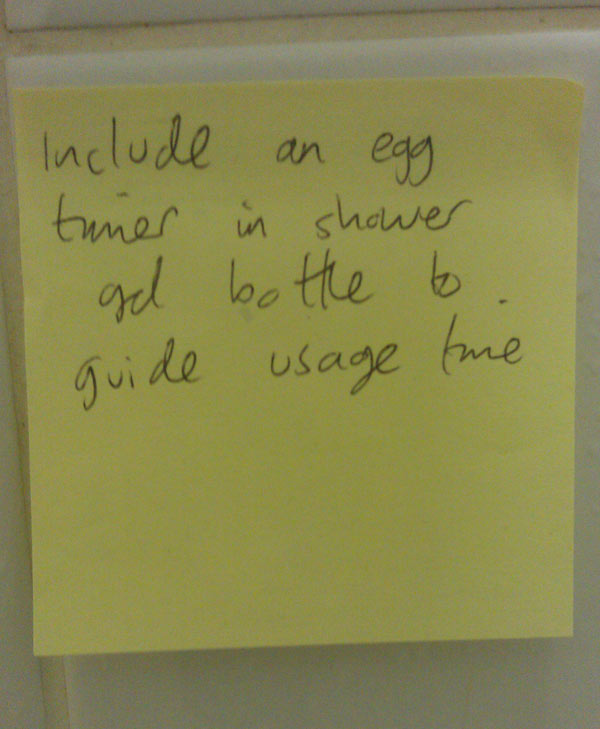 Include an egg
timer in shower
gel bottle to
guide usage time